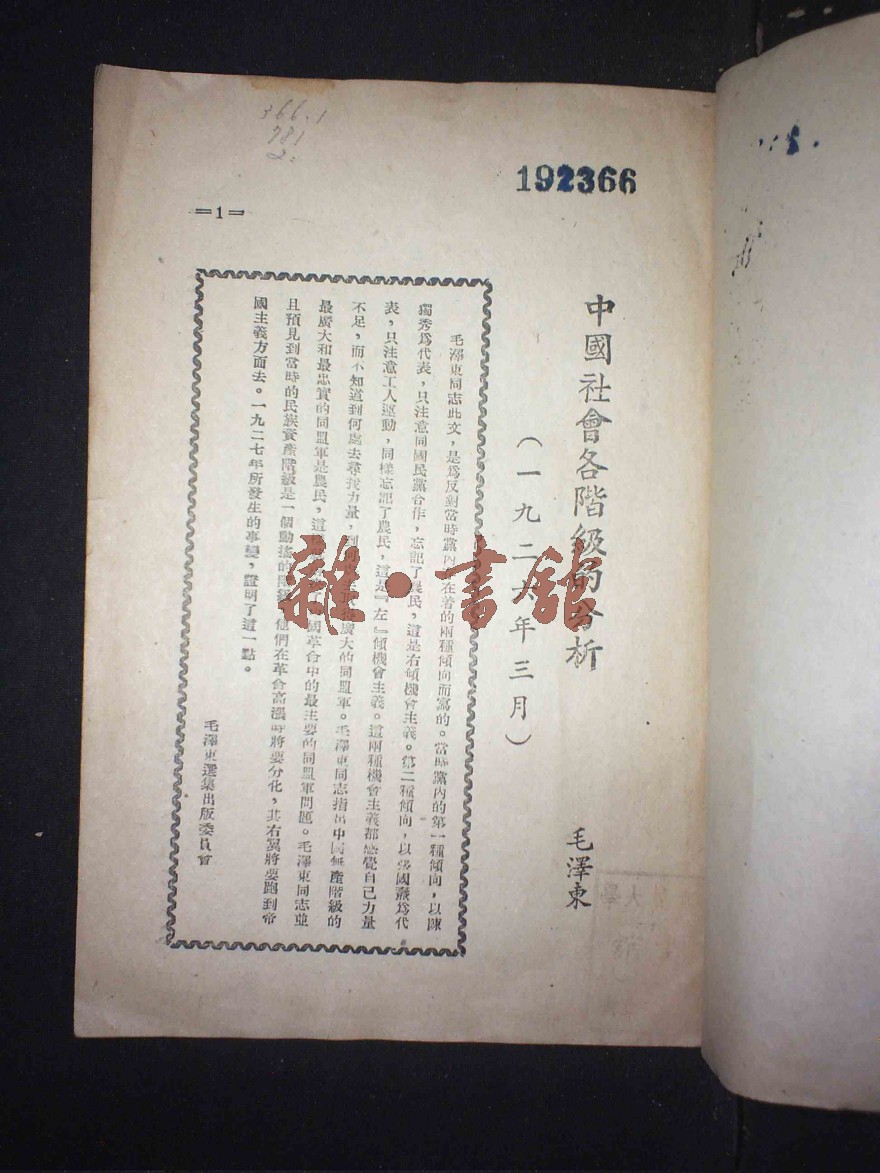 192366
366.1
781
=1=
中國社會各階級的分析
（一九二六年三月）
毛澤東
毛澤東同志此文，是爲反對當時黨內存在着的兩種傾向而寫的。當時黨內的第一種傾向，以陳
獨秀爲代表，只注意同國民黨合作，忘記了農民，這是右傾機會主義。第二種傾向，以張國燾爲代
表，只注意工人運動，同樣忘記了農民，這是『左』傾機會主義。這兩種機會主義都感覺自己力量
不足，而不知道到何處去尋找力量，到廣大的同盟軍。毛澤東同志指出中國無產階級的
最廣大和最忠實的同盟軍是農民，這國革命中的最主要的同盟軍問題。毛澤東同志並
且預見到當時的民族資產階級是一個動搖的階級，他們在革命高漲時將要分化，其右翼將要跑到帝
國主義方面去。一九二七年所發生的事變，證明了這一點。
毛澤東選集出版委員會
雜·書館
大學